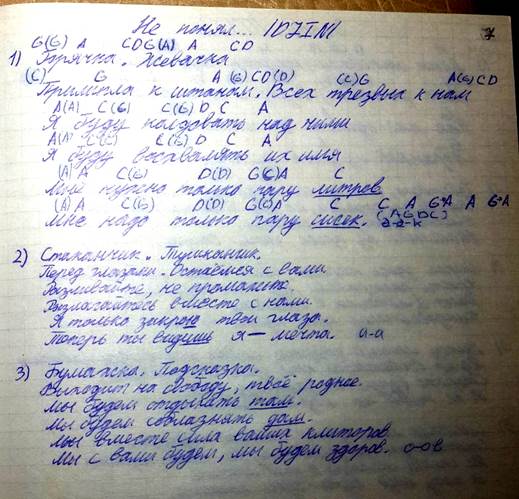 Не понял... (DJIM) 7
G(G) A CDG(A) A CD
1) Тряпка. Жевачка
(C) G A(G)CD(D) (C)G A(G)CD
Прилипла к штанам. Всех трезвых к нам
A(A) C(G) C(G)D C A
Я буду колдовать над ними
A(A) C(G) C(G)D C A
Я буду восхвалять их имя
(A)A C(G) D(D) G(C)A C
Мне нужно только пару литров
(A)A C(G) D(D) G(G)A C C A G+A A G+A
Мне надо только пару сисек. [AGDC]
2) Стаканчик. Тушканчик.
Перед глазами. Остаёмся с вами
Разливайте, не проманите.
Возлагайтесь вместе с нами.
Я только закрою твои глаза.
Теперь ты видишь я — мечта. а-а
3) Бумажка. Подсказка.
Выходит на свободу, твоё родное.
Мы будем отдыхать там.
Мы будем соблазнять дам.
Мы вместе сила ваших клиторов
Мы с вами будем, мы будем здоров. о-ов